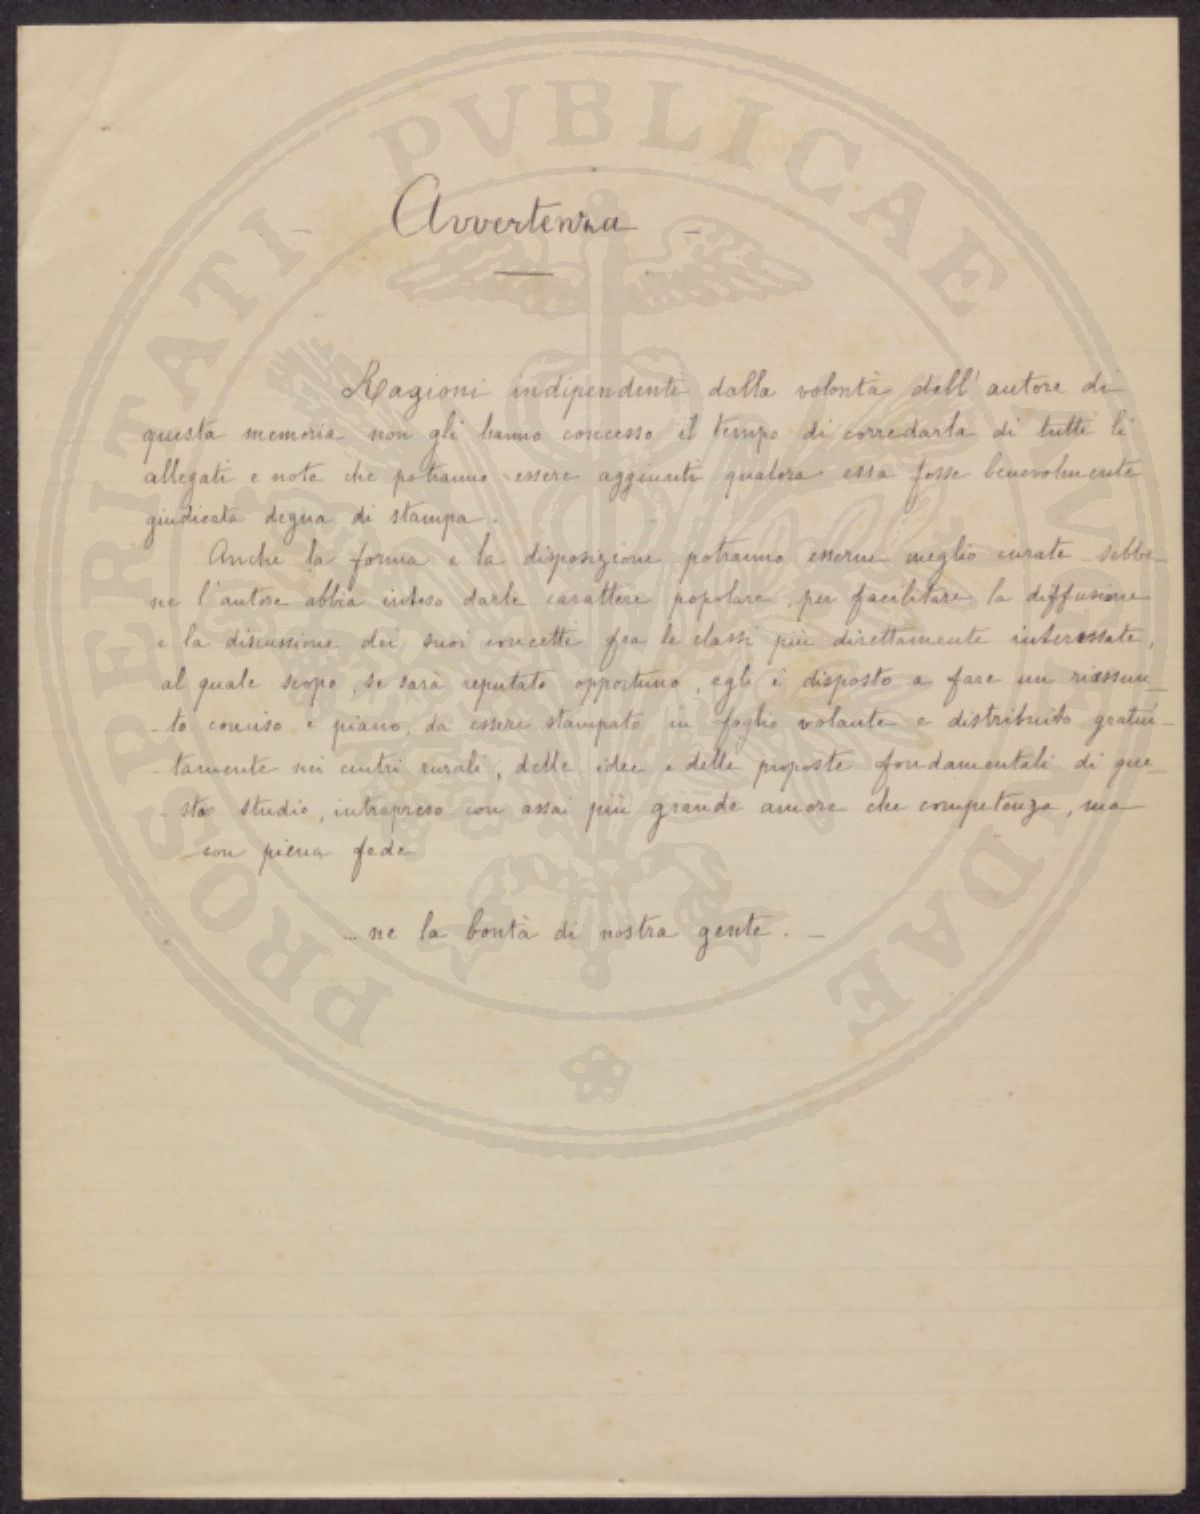 Avvertenza
Ragioni indipendenti dalla volontà dell'autore di
questa memoria non gli hanno concesso il tempo di corredarla di tutti li
allegati e note che potranno essere aggiunti qualora essa fosse benevolmente
giudicata degna di stampa.
Anche la forma e la disposizione potranno esserne meglio curate sebbe-
ne l'autore abbia inteso darle carattere popolare, per facilitare la diffusione
e la discussione dei suoi concetti fra le classi più direttamente interessate,
al quale scopo, se sarà reputato opportuno, egli è disposto a fare un riassun-
-to conciso e piano, da essere stampato in foglio volante e distribuito gratui-
-tamente nei centri rurali, delle idee e delle proposte fondamentali di que-
-sto studio, intrapreso con assai più grande amore che competenza, ma
con piena fede
... ne la bontà di nostra gente. -
PROSPERITATI PVBLICAE AVGENDAE